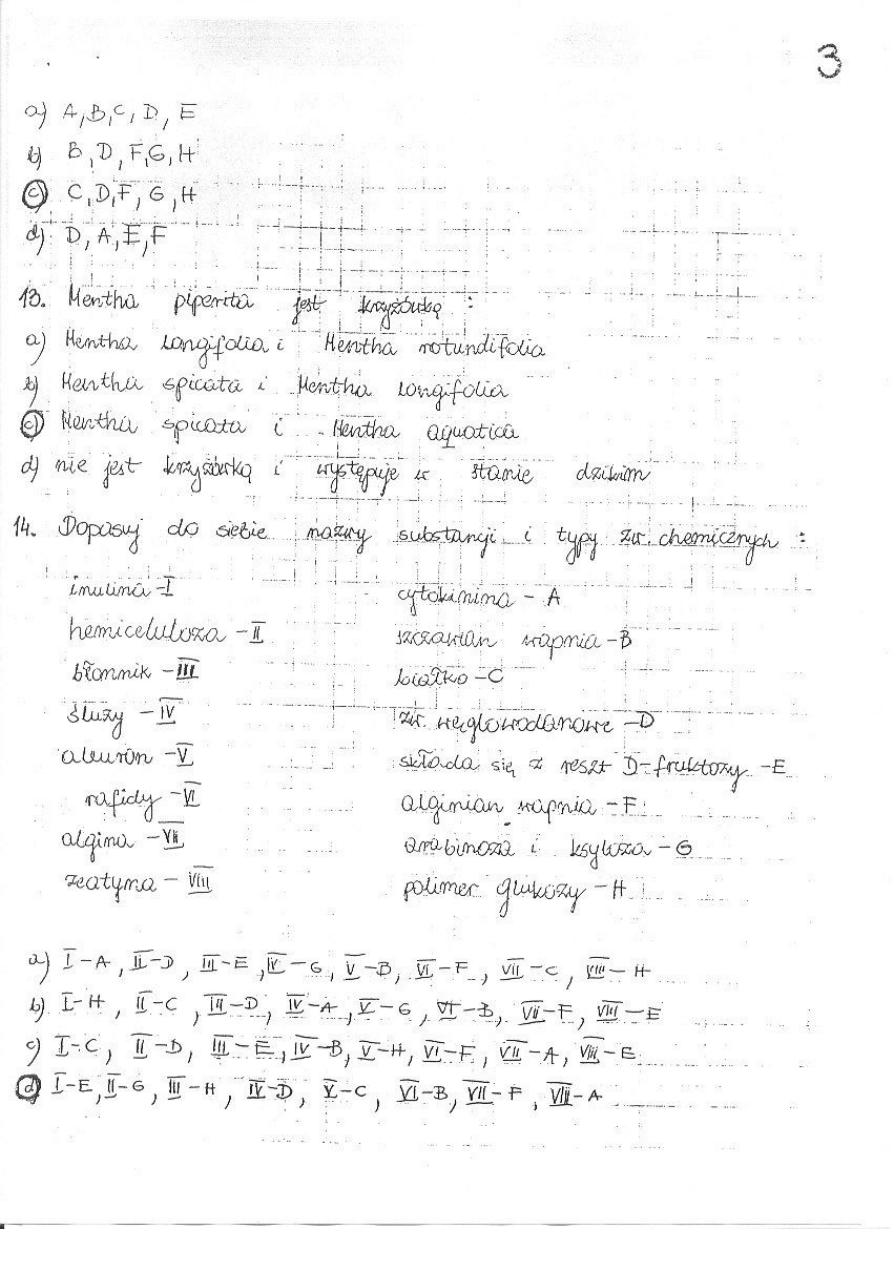 3
a) A, B, C, D, E
b) B, D, F, G, H
c) C, D, F, G, H
d) D, A, E, F
13. Mentha piperita jest krzyżówką :
a) Mentha longifolia i Mentha rotundifolia
b) Mentha spicata i Mentha longifolia
c) Mentha spicata i Mentha aquatica
d) nie jest krzyżówką i występuje w stanie dzikim
14. Dopasuj do siebie nazwy substancji i typy zw. chemicznych :
inulina - I cytokinina - A
hemiceluloza - II szczawian wapnia - B
błonnik - III białko - C
śluzy - IV zw. węglowodanowe - D
aleuron - V składa się z reszt D-fruktozy - E
rafidy - VI alginian wapnia - F
algina - VII arabinoza i ksyloza - G
zeatyna - VIII polimer glukozy - H
a) I - A, II - D, III - E, IV - G, V - B, VI - F, VII - C, VIII - H
b) I - H, II - C, III - D, IV - A, V - G, VI - B, VII - F, VIII - E
c) I - C, II - D, III - E, IV - B, V - H, VI - F, VII - A, VIII - E
d) I - E, II - G, III - H, IV - D, V - C, VI - B, VII - F, VIII - A